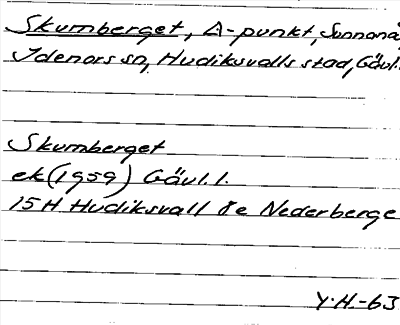 Skumberget, Δ-punkt, Sunnanå,
Idenors sn, Hudiksvalls stad, Gävl.
Skumberget
ek (1959) Gävl. l.
15H Hudiksvall 8e Nederberge
Y.H.-63